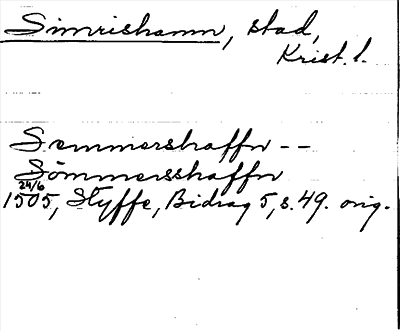 Simrishamn, stad,
Krist. l.
Semmershaffn --
Sömmersshaffn
24/6
1505, Styffe, Bidrag 5, s. 49. orig.